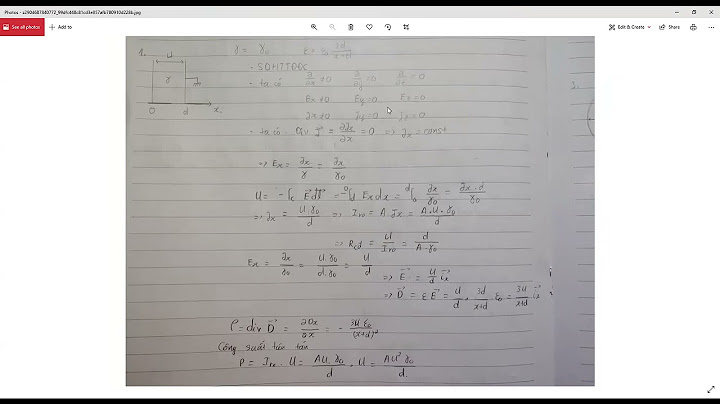 Photos - z2904687840772_99dfc448c81cd3e857afb780910d228b.jpg
See all photos
Add to
Edit & Create
Share
1.
U
γ
0 d x
γ = γ₀ ε = ε₀ 3d/(x+d)
- SĐHTTĐDC
- ta có ∂/∂x ≠ 0 ∂/∂y = 0 ∂/∂z = 0
Ex ≠ 0 Ey = 0 Ez = 0
Jx ≠ 0 Jy = 0 Jz = 0
- ta có Div J⃗ = ∂Jx/∂x = 0 => Jx = const
=> Ex = Jx/γ = Jx/γ₀
=> Jx = U.γ₀/d => Iro = A.Jx = A.U.γ₀/d
=> Rcd = U/Iro = d/(A.γ₀)
Ex = Jx/γ₀ = U.γ₀/(d.γ₀) = U/d
=> E⃗ = U/d i⃗x
=> D⃗ = εE⃗ = U/d . 3d/(x+d) . ε₀ = 3U/(x+d) i⃗x
ρ = div D⃗ = ∂Dx/∂x = - 3U.ε₀/(x+d)²
Công suất tổn tán
P = Iro . U = AU.γ₀/d . U = AU²γ₀/d.